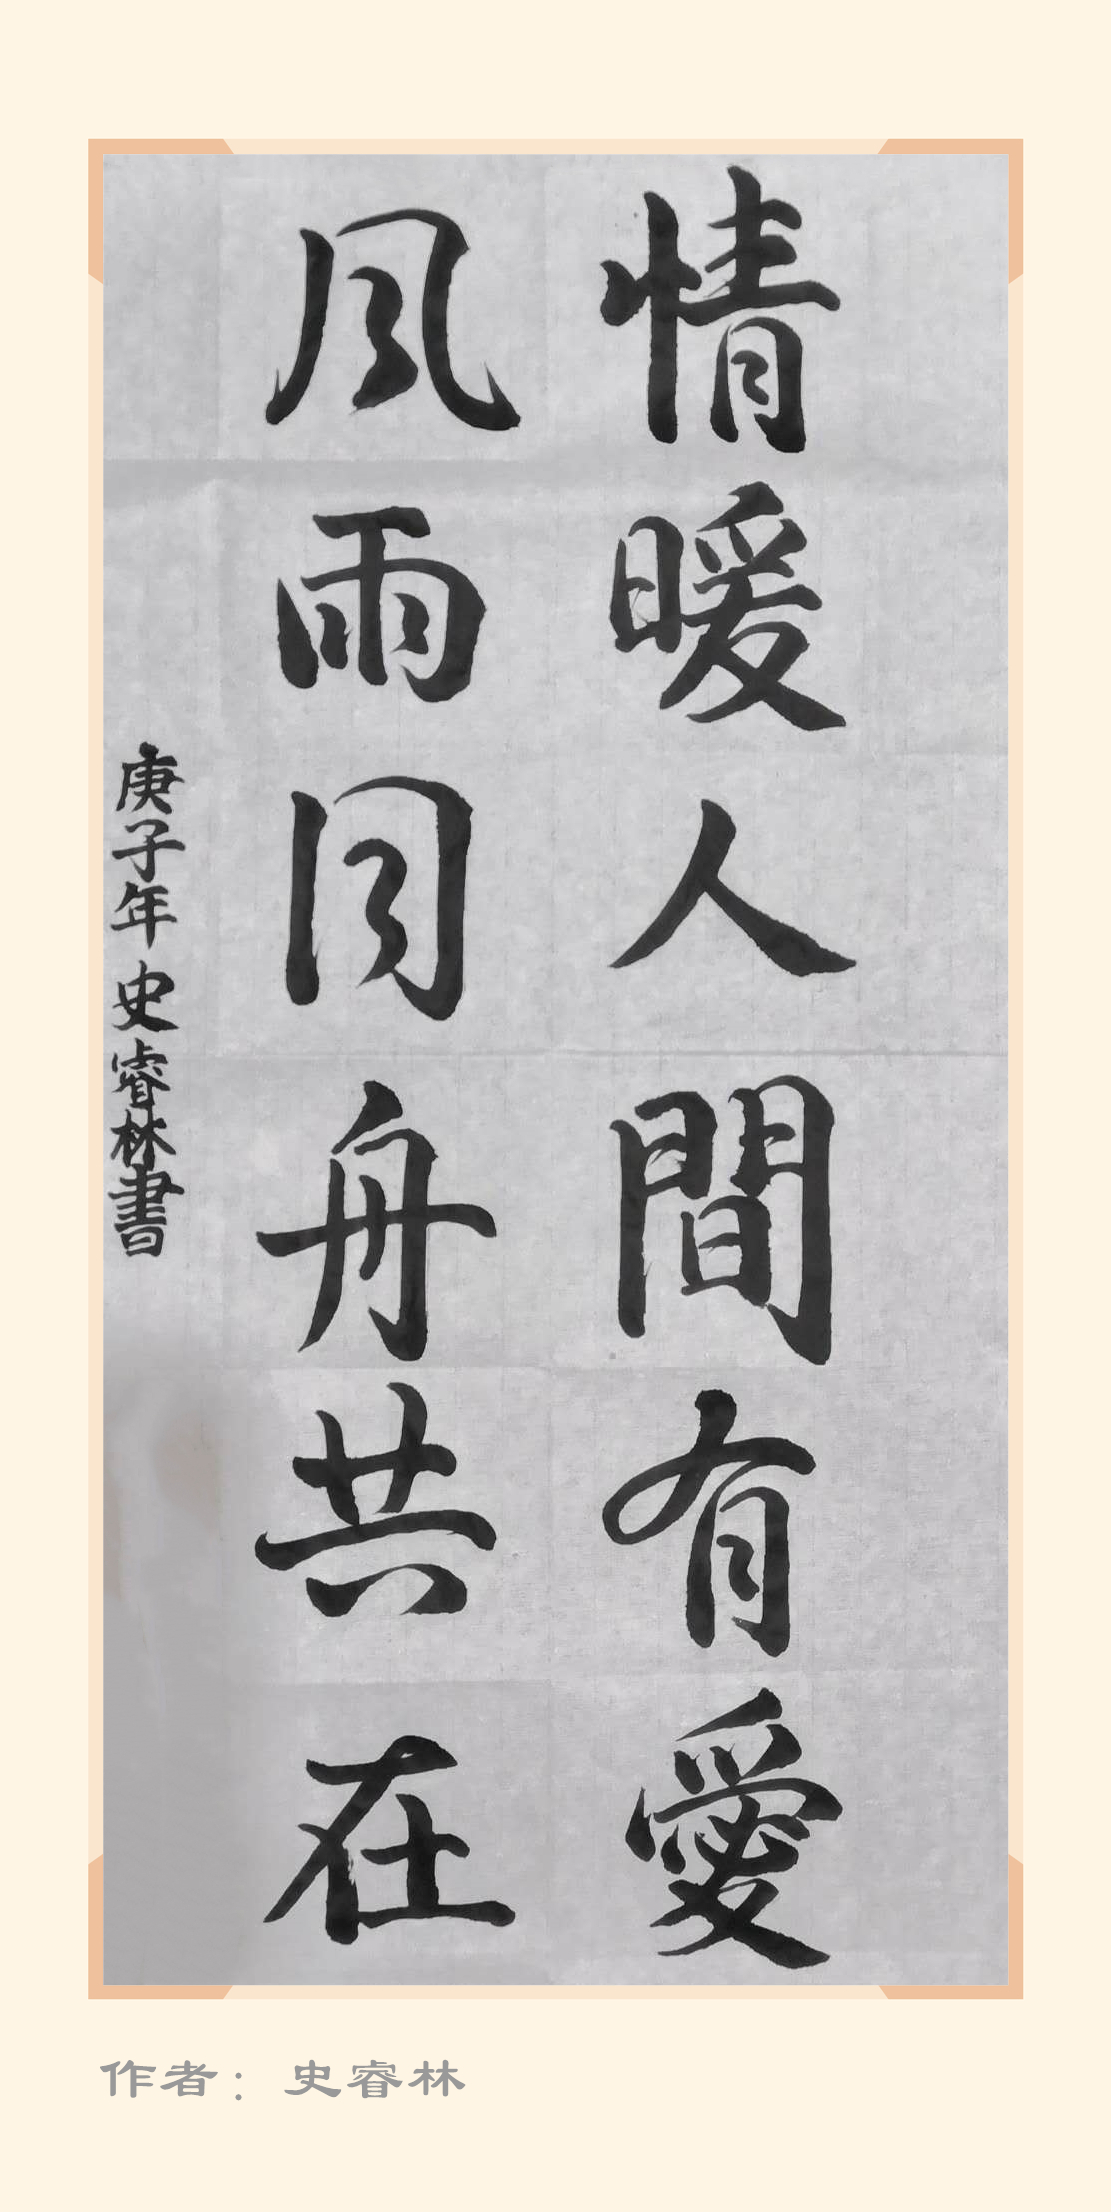 情暖人間有愛
風雨同舟共在
庚子年史睿林書
作者：史睿林